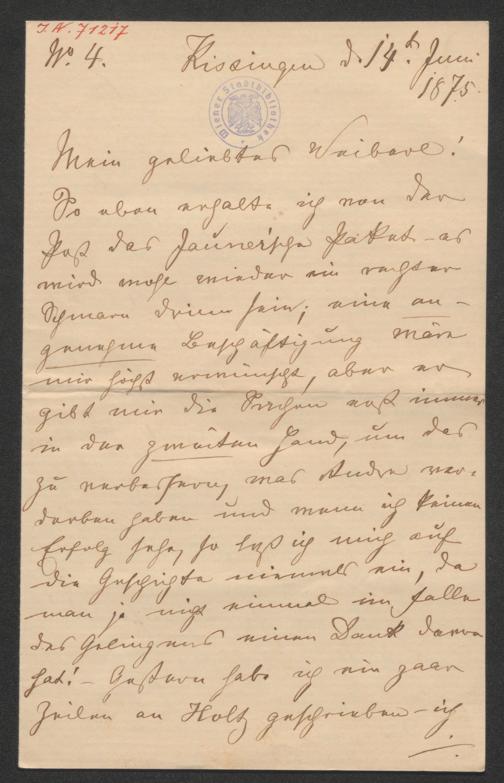 I.N. 71217
No. 4.
Kissingen d. 14t Juni
1875.
Wiener Stadtbibliothek
Mein geliebtes Weiberl!
So eben erhalte ich von der
Post das Jauner'sche Paket – es
wird wohl wieder ein rechter
Schmarn drinn sein; eine an-
genehme Beschäftigung wäre
mir höchst erwünscht, aber er
gibt mir die Sachen erst immer
in der zweiten Hand, um das
zu verbessern, was Andre ver-
dorben haben und wenn ich keinen
Erfolg sehe, so laß ich mich auf
die Geschichte niemals ein, da
man ja nicht einmal im Falle
des Gelingens einen Dank davon
hat! – Gestern habe ich ein paar
Zeilen an Holtz geschrieben – ich